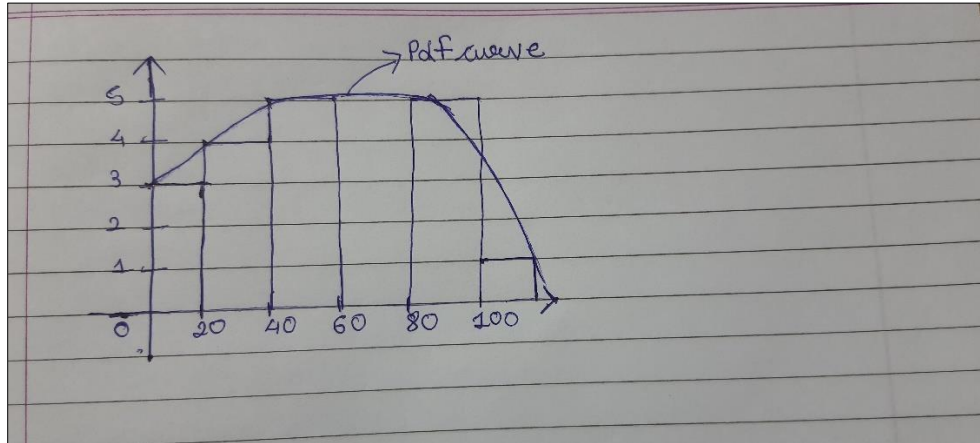 Pdf curve
5
4
3
2
1
0 20 40 60 80 100